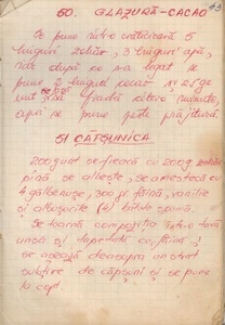 50. GLAZURĂ-CACAO
Se pune într-o crăticioară 5
linguri zahăr, 3 linguri apă,
iar după ce s-a legat se
pune 2 linguri cacao și 25 ge
unt și se freacă câteva minute,
apoi se pune peste prăjitură.
51 CĂPȘUNICA
200 g unt se freacă cu 200 g zahăr
până se albește, se amestecă cu
4 gălbenușe, 300 gr. făină, vanilie
și albușurile (4) bătute spumă.
Se toarnă compoziția într-o tavă
unsă și tapetată cu făină și
se așează deasupra un strat
subțire de căpșuni și se pune
la copt.